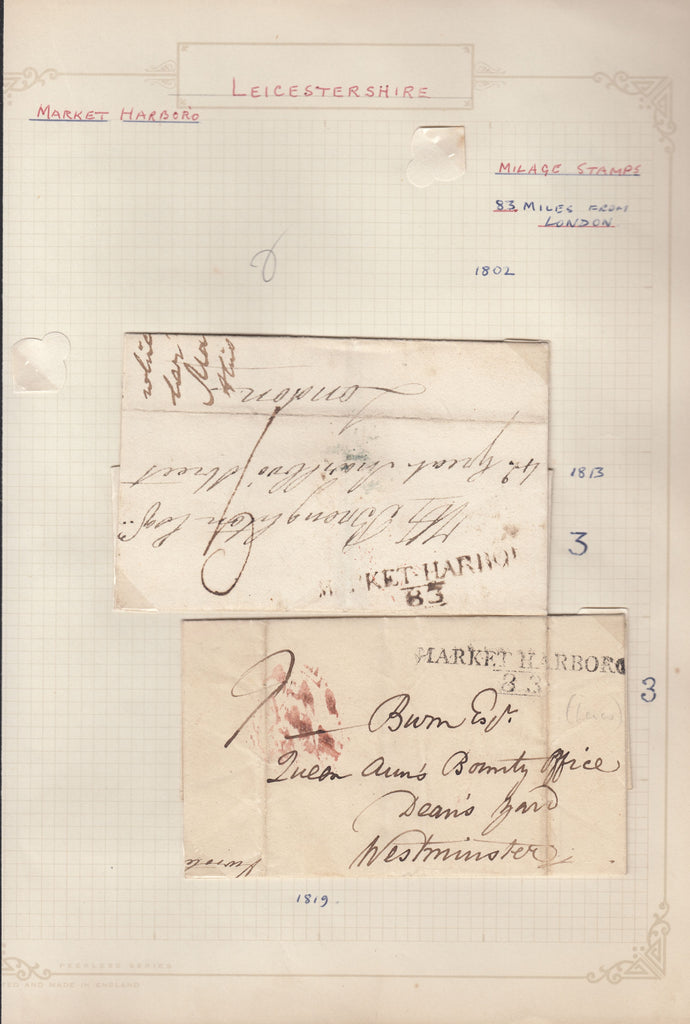 LEICESTERSHIRE
MARKET HARBORO
MILAGE STAMPS
83 MILES FROM
LONDON
1802
London
Great Marlbro' Street
Broughton Esqr.
1813
3
MARKET-HARBO
83
MARKET HARBORO
83
3
(Leics)
Burn Esqr.
Queen Ann's Bounty Office
Dean's Yard
Westminster
1819.
PEERLESS SERIES
TED AND MADE IN ENGLAND